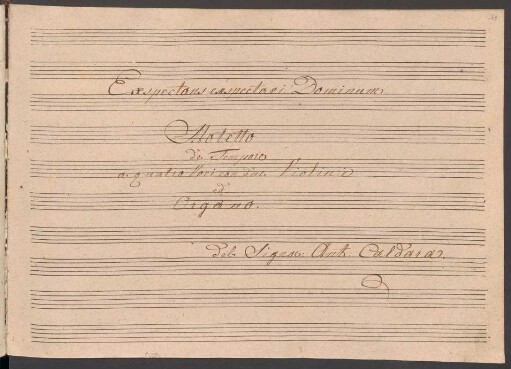 Exspectans exspectavi Dominum
Motetto
de Tempore
a quatro Voci con due Violini
ed
Organo.
del Signor Ant. Caldara.